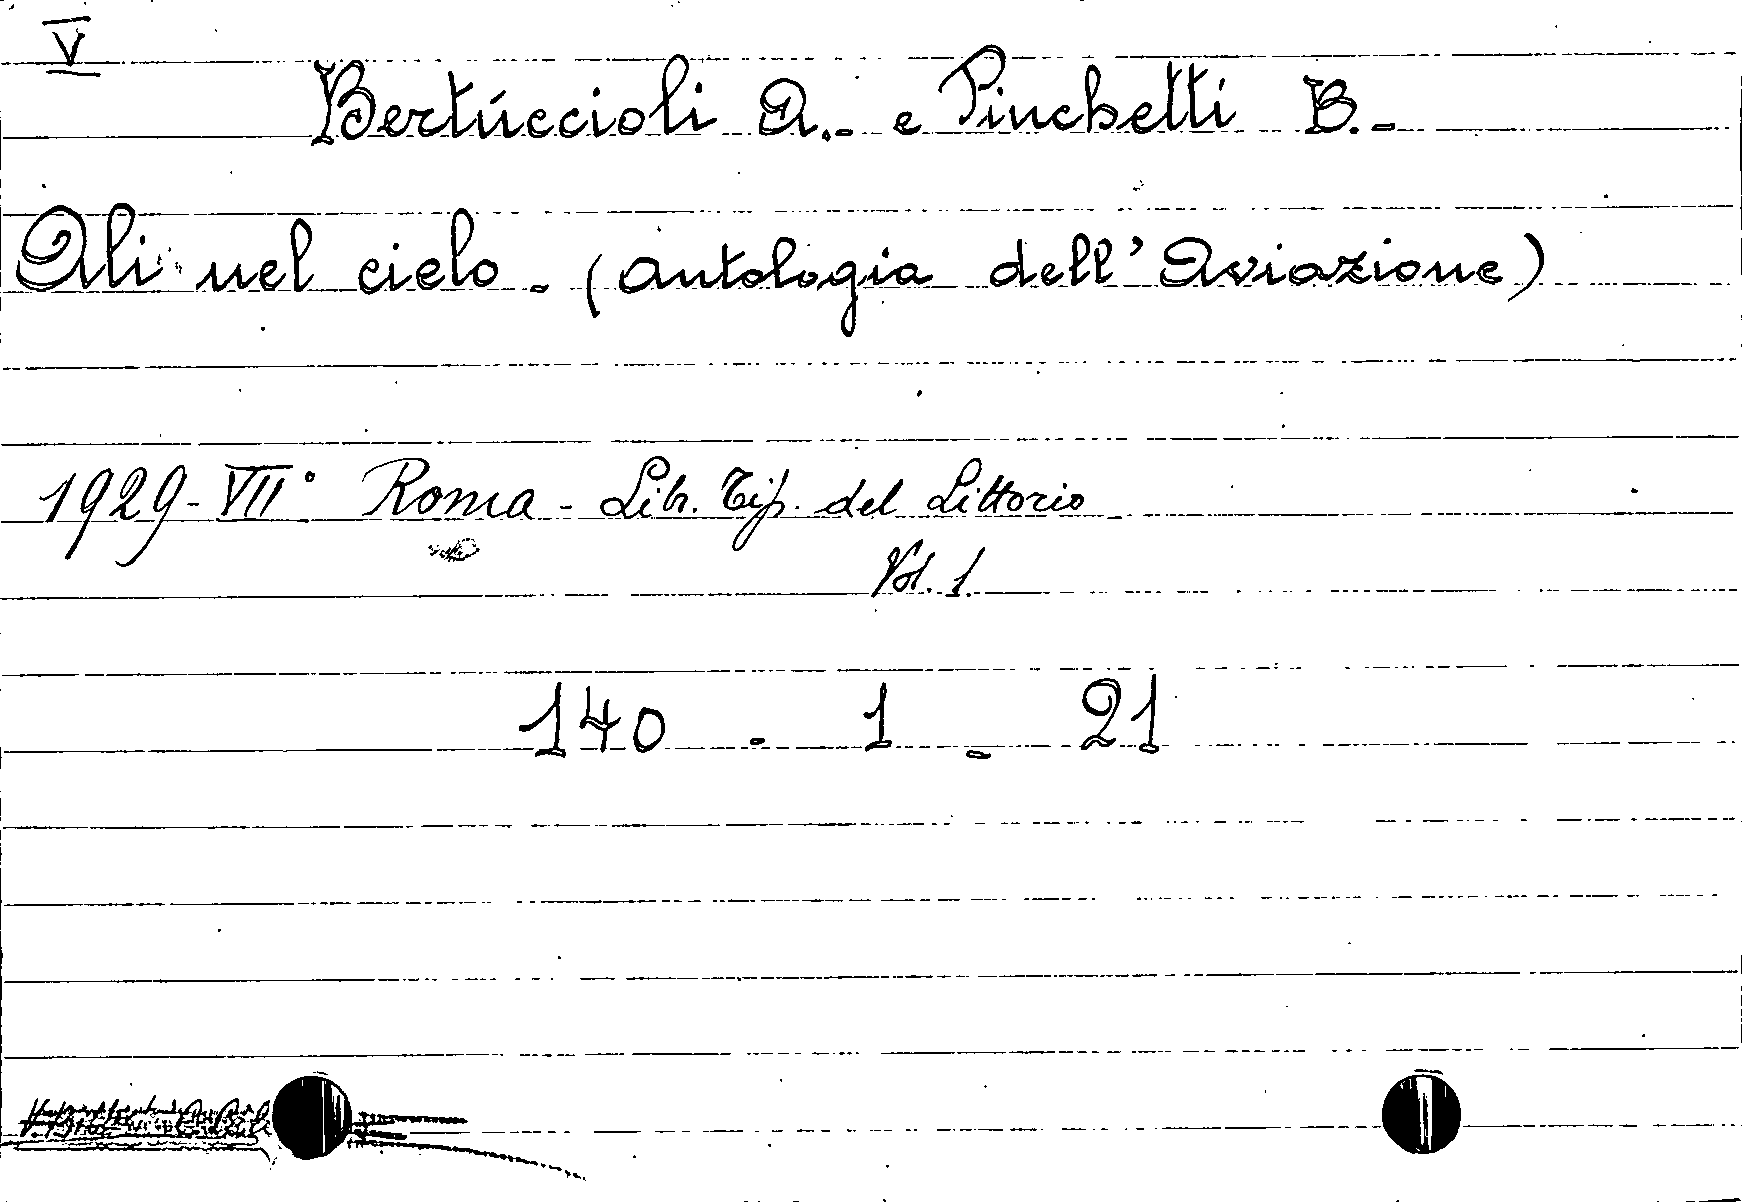 V
Bertuccioli A.- e Pinchetti B.-
Ali nel cielo. (Antologia dell'Aviazione)
1929-VII° Roma - Lib. Tip. del Littorio
Vol. 1.
140 - 1 - 21